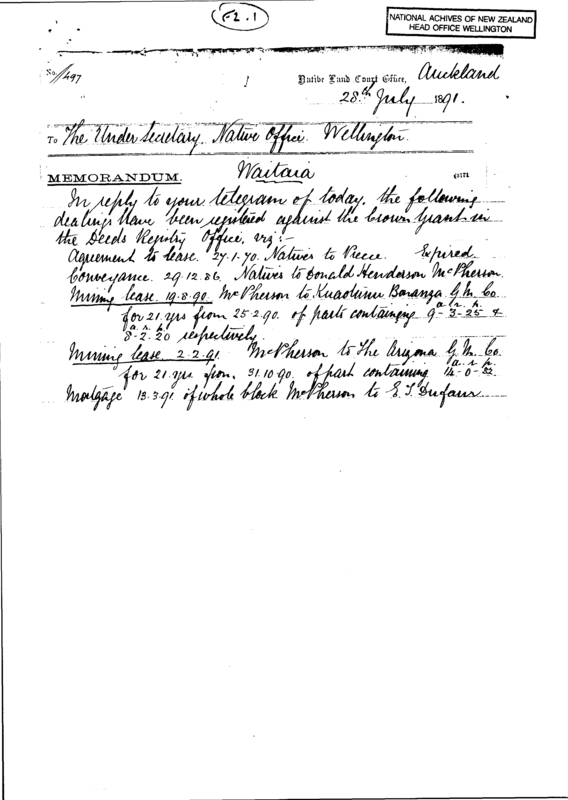 F2.1
NATIONAL ACHIVES OF NEW ZEALAND
HEAD OFFICE WELLINGTON
No. 1497
Native Land Court Office, Auckland
28th July 1891.
To The Under Secretary. Native Office. Wellington.
MEMORANDUM. Waitaia
In reply to your telegram of today, the following
dealings have been registered against the Crown Grant in
the Deeds Registry Office, viz:-
Agreement to lease. 27.1.70. Natives to Preece. Expired.
Conveyance. 29.12.86. Natives to Donald Henderson McPherson.
Mining lease. 19.8.90. McPherson to Kuaotunu Bonanza G.M. Co.
for 21 yrs from 25.2.90. of parts containing 9-3-25 &
a. r. p.
8-2-20 respectively
Mining lease. 2.2.91. McPherson to The Arizona G.M. Co.
a. r. p.
for 21 yrs from. 31.10.90. of part containing 14-0-32
Mortgage 13.3.91 of whole block McPherson to E.T. Dufaur